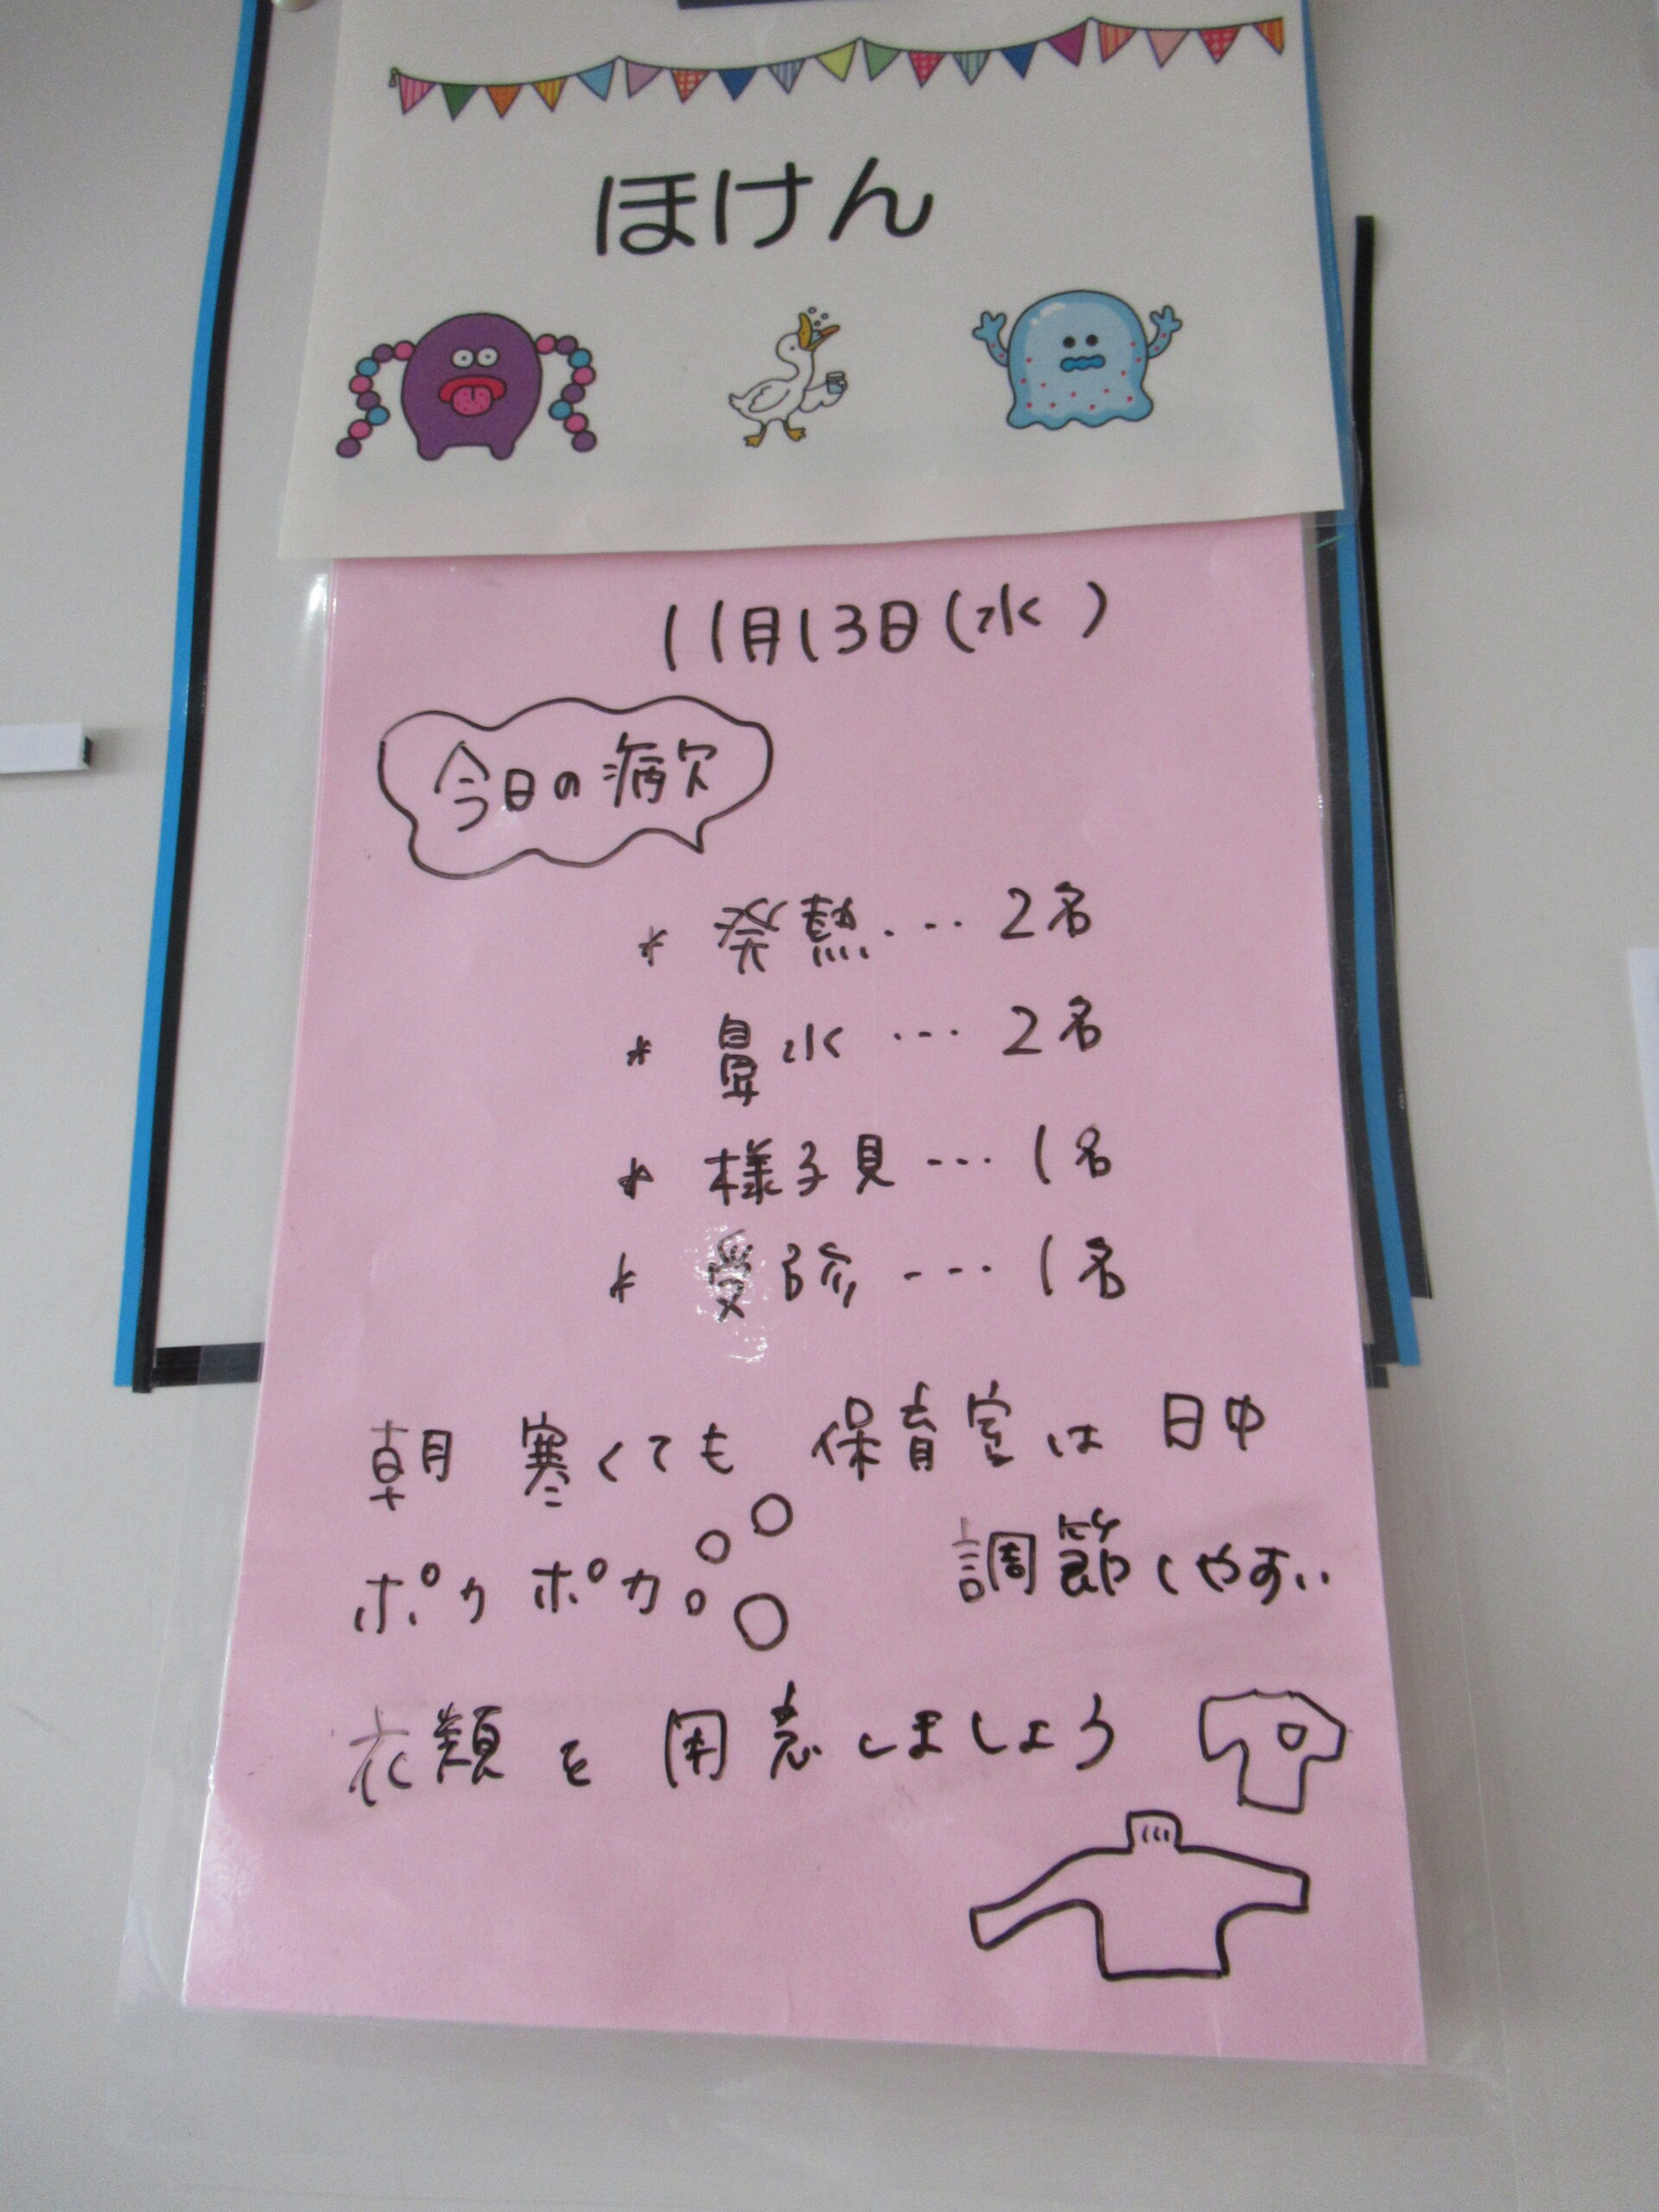 ほけん
11月13日(水)
今日の病欠
* 発熱・・・2名
* 鼻水・・・2名
* 様子見・・・1名
* 受診・・・1名
朝 寒くても 保育室は 日中
ポカポカ 調節しやすい
衣類を 用意しましょう